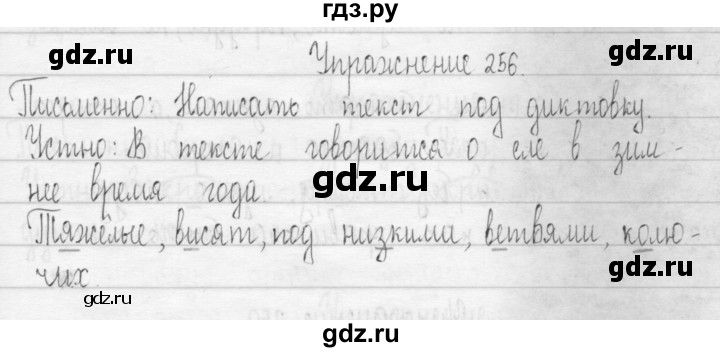 гдз.ру
gdz.ru gdz.ru
Упражнение 256.
Письменно: Написать текст под диктовку.
Устно: В тексте говорится о еле в зим-
нее время года.
gdz.ru gdz.ru
Тяжёлые, висят, под низкими, ветвями, колю-
чих
gdz.ru
gdz.ru
gdz.ru